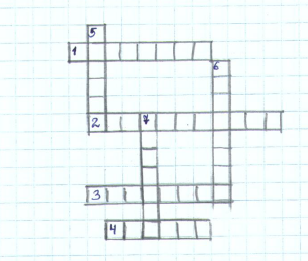 5
1
6
2 7
3
4